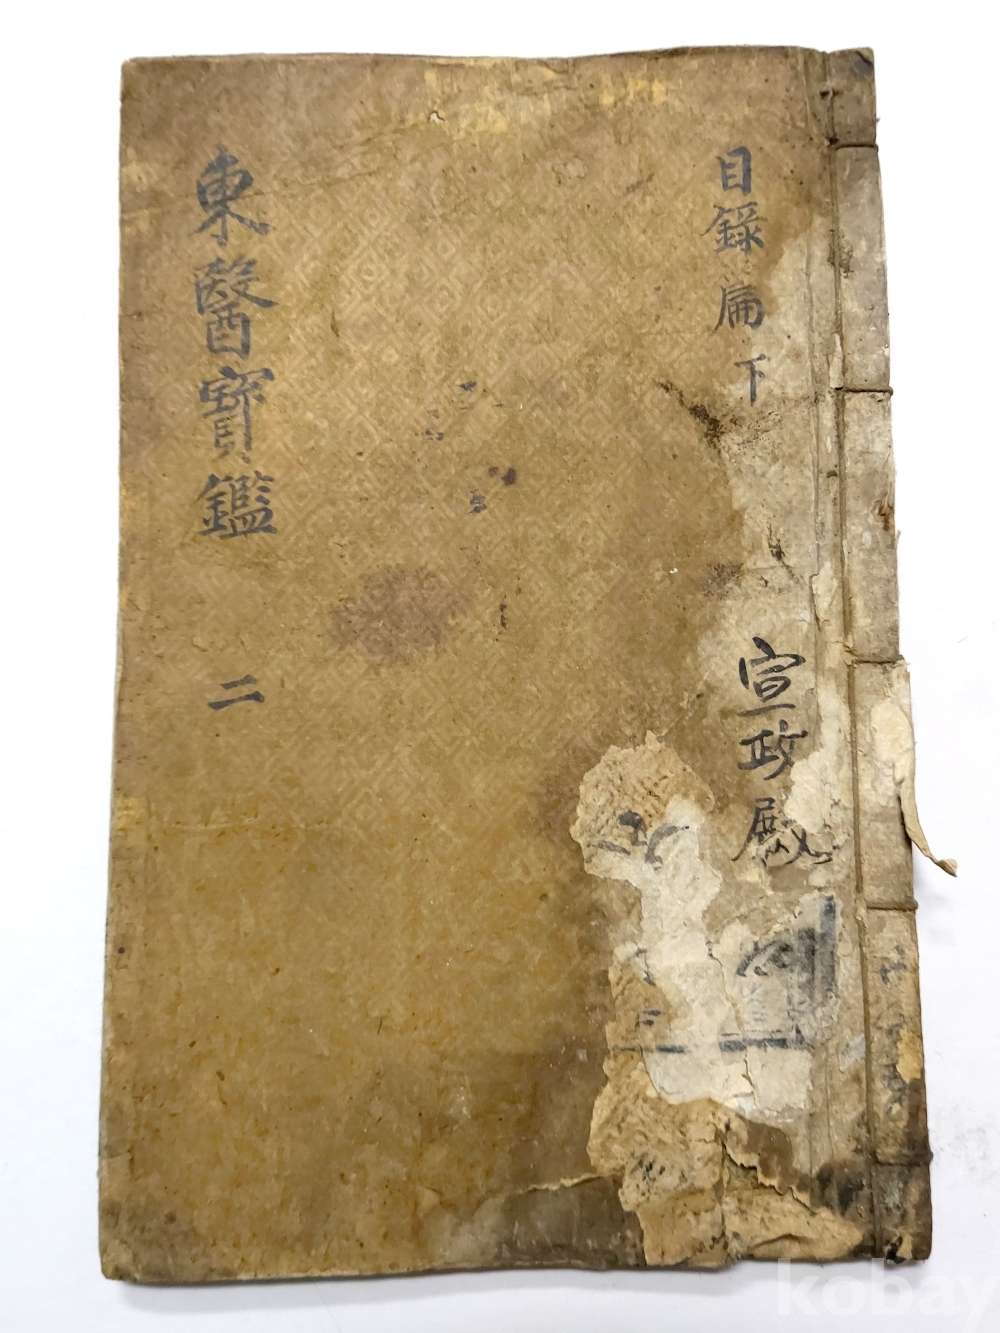 目錄篇 下
宣政殿
東醫寶鑑 二
kobay